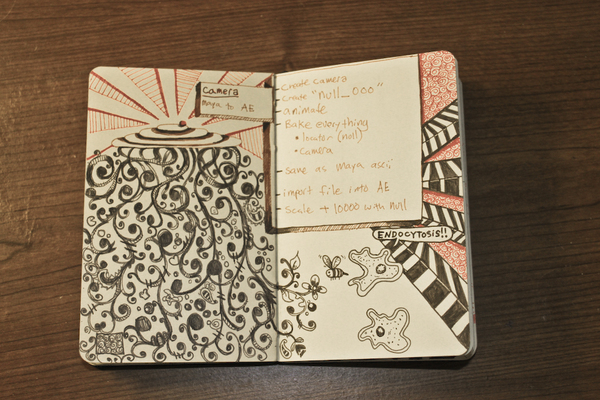 Camera
Maya to AE
Create camera
Create "null_000"
animate
Bake everything
• locator (null)
• Camera
save as Maya ascii
import file into AE
Scale + 10000 with null
ENDOCYTOSIS!!